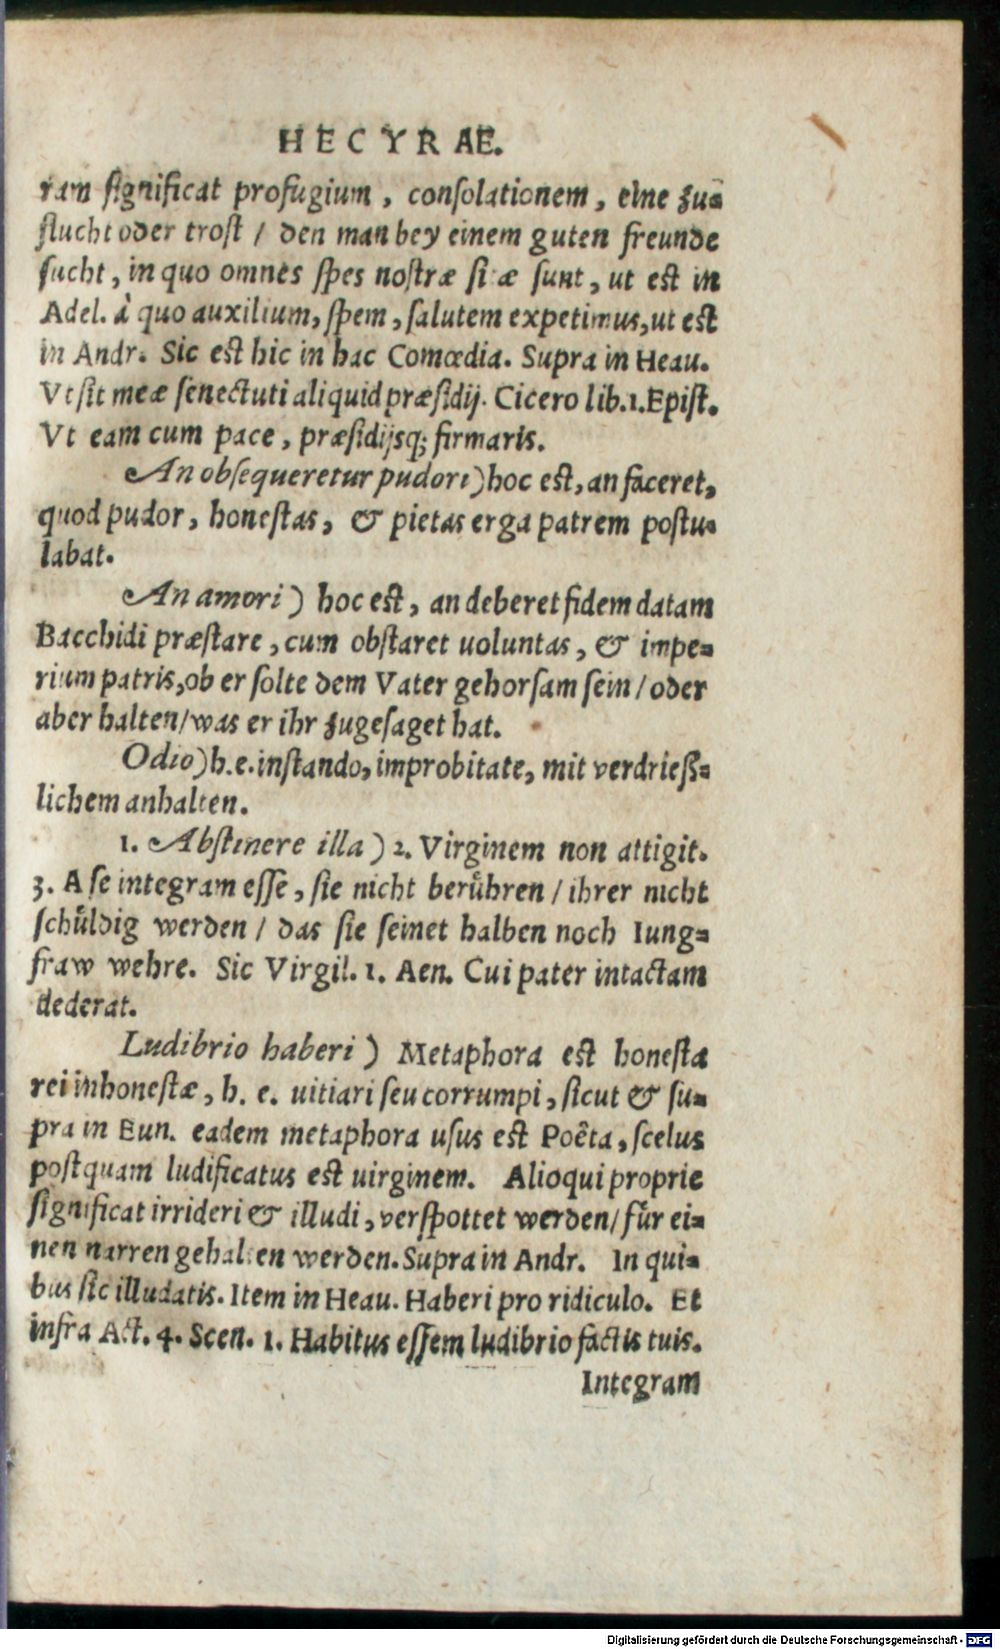 HECYRAE.
ram ſignificat profugium, conſolationem, eine zu=
flucht oder troſt / den man bey einem guten freunde
ſucht, in quo omnes ſpes noſtræ ſitæ ſunt, ut est in
Adel. à quo auxilium, ſpem, ſalutem expetimus, ut est
in Andr. Sic est hic in hac Comœdia. Supra in Heau.
Vt ſit meæ ſenectuti aliquid præſidij. Cicero lib.1.Epiſt.
Vt eam cum pace, præſidijsq; firmaris.
An obſequeretur pudori) hoc est, an faceret,
quod pudor, honeſtas, & pietas erga patrem poſtu=
labat.
An amori) hoc est, an deberet fidem datam
Bacchidi præſtare, cum obſtaret uoluntas, & impe=
rium patris, ob er ſolte dem Vater gehorſam ſein / oder
aber halten / was er ihr zugeſaget hat.
Odio) h.e. inſtando, improbitate, mit verdrieß=
lichem anhalten.
1. Abſtinere illa) 2. Virginem non attigit.
3. A ſe integram eſſe, ſie nicht berühren / ihrer nicht
ſchüldig werden / das ſie ſeinet halben noch Iung=
fraw wehre. Sic Virgil. 1. Aen. Cui pater intactam
dederat.
Ludibrio haberi) Metaphora est honeſta
rei inhoneſtæ, h. e. uitiari ſeu corrumpi, ſicut & ſu=
pra in Eun. eadem metaphora uſus est Poêta, ſcelus
poſtquam ludificatus est uirginem. Alioqui proprie
ſignificat irrideri & illudi, verſpottet werden / für ei=
nen narren gehalten werden. Supra in Andr. In qui=
bus ſic illudatis. Item in Heau. Haberi pro ridiculo. Et
infra Act. 4. Scen. 1. Habitus eſſem ludibrio factis tuis.
Integram
Digitalisierung gefördert durch die Deutsche Forschungsgemeinschaft - DFG